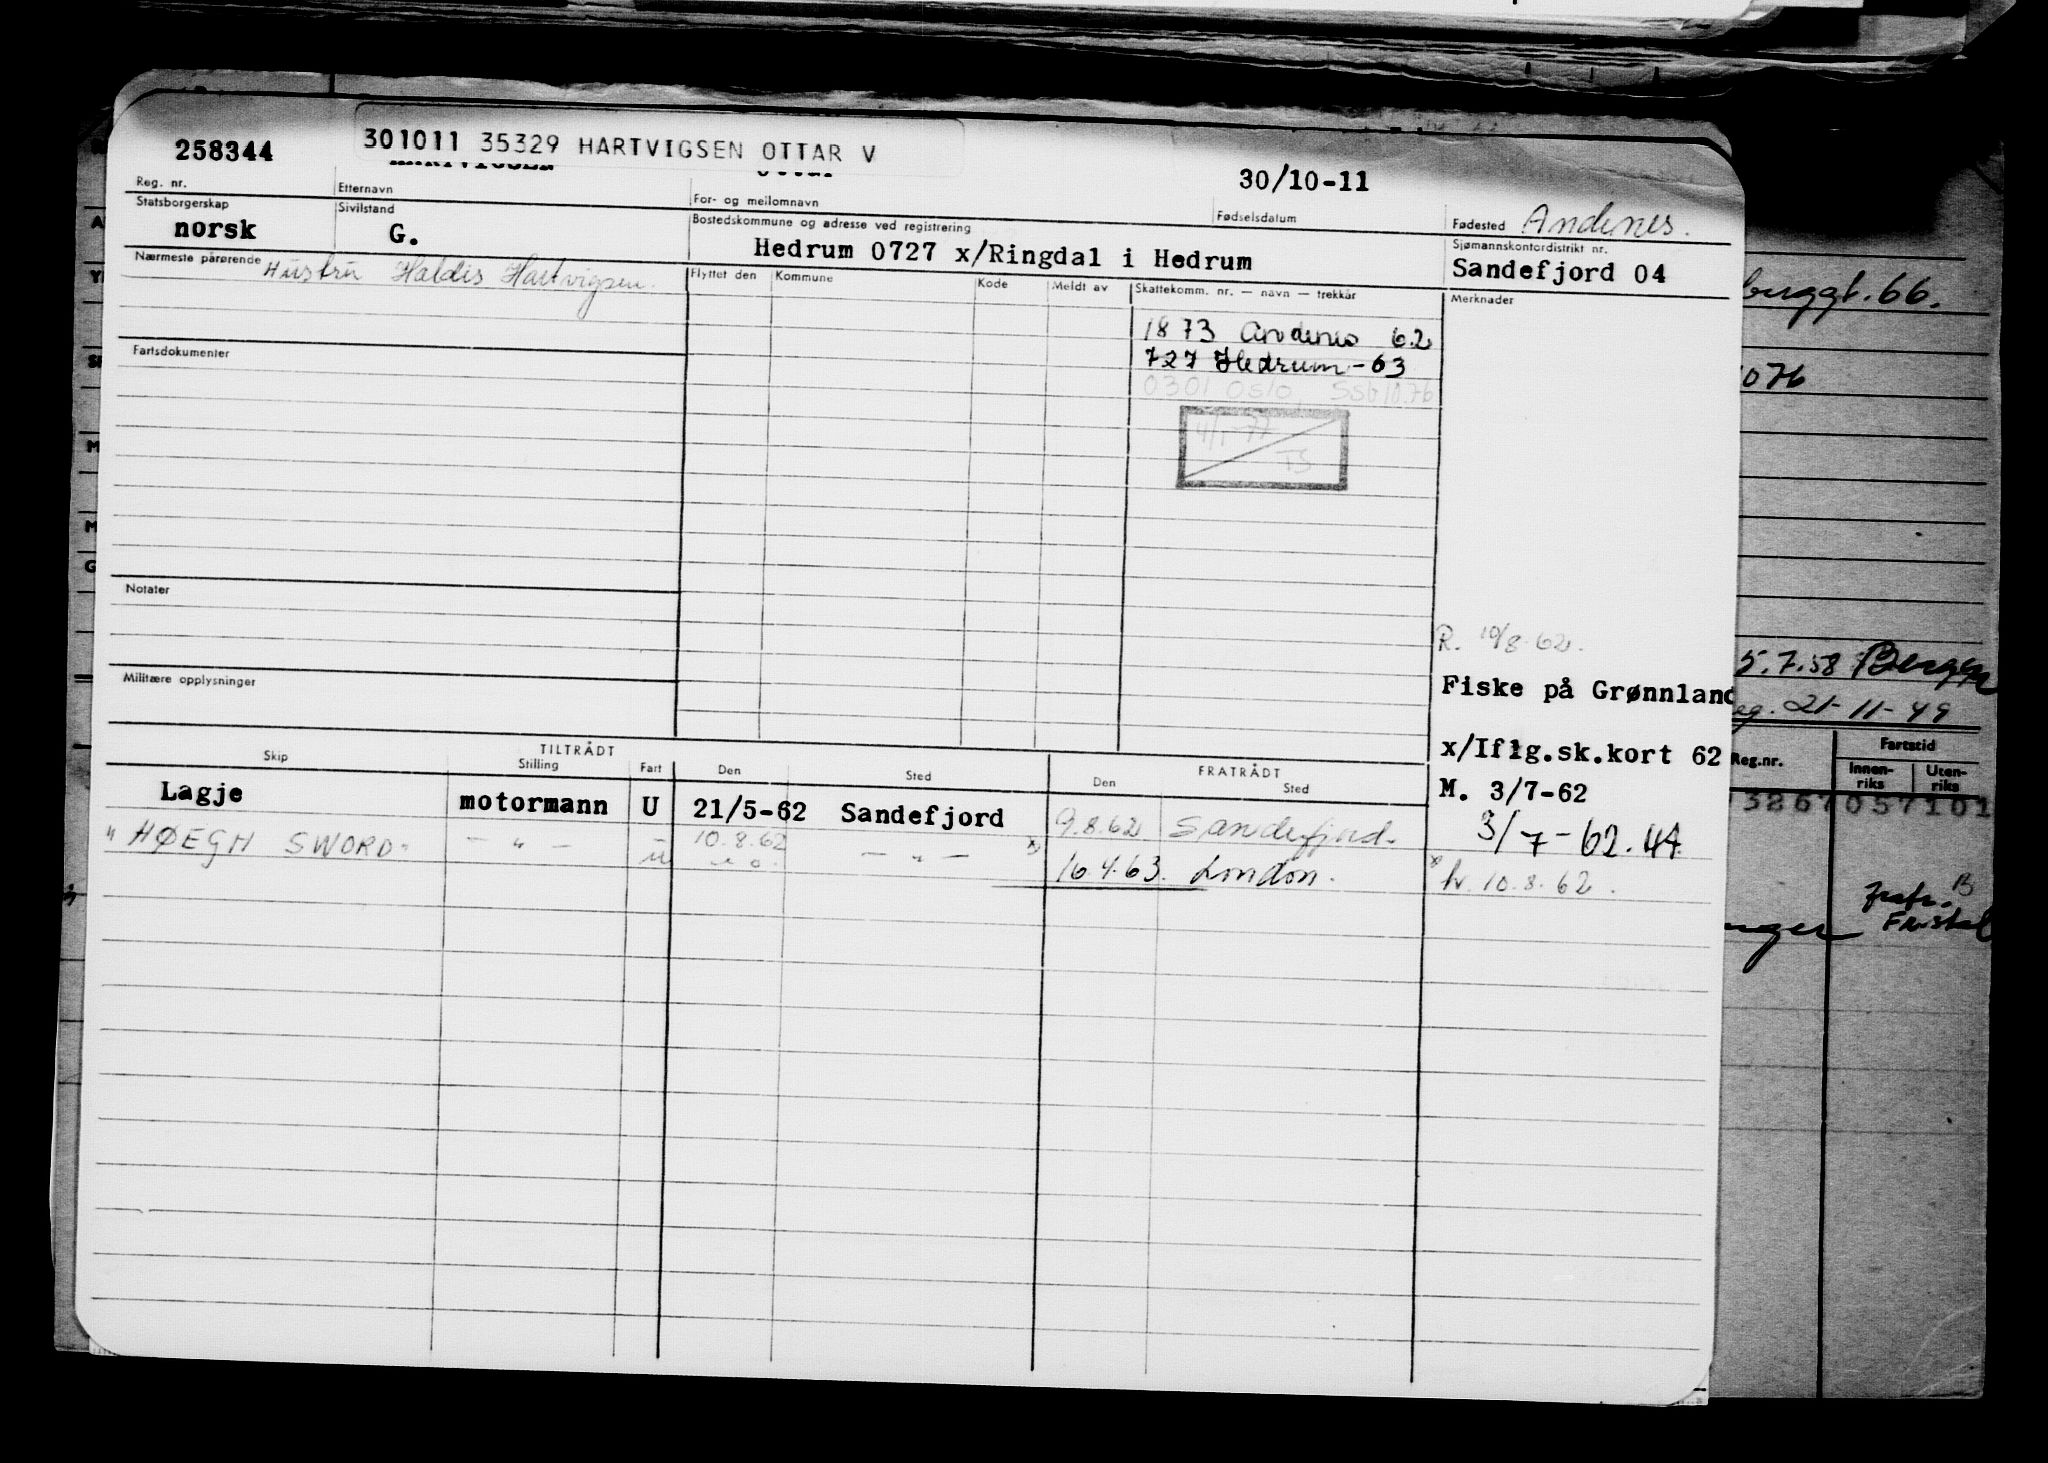 258344
301011 35329 HARTVIGSEN OTTAR V
30/10-11
Reg. nr.
Etternavn
For- og mellomnavn
Fødselsdatum
Fødested Andenes.
Statsborgerskap
norsk
Sivilstand
G.
Bostedskommune og adresse ved registrering
Hedrum 0727 x/Ringdal i Hedrum
Sjømannskontordistrikt nr.
Sandefjord 04
Nærmeste pårørende Hustru Haldis Hartvigsen.
Flyttet den
Kommune
Kode
Meldt av
Skattekomm. nr. — navn — trekkår
Merknader
1873 Andenes 62
727 Hedrum - 63
0301 Oslo, Ssb 10.76
4/1-77
TS
Fartsdokumenter
Notater
Militære opplysninger
R. 10/8-62.
Fiske på Grønnland
x/Iflg.sk.kort 62
M. 3/7-62
3/7-62.
x) hr. 10.8.62.
TILTRÅDT
FRATRÅDT
Skip
Stilling
Fart
Den
Sted
Den
Sted
Lagje
motormann
U
21/5-62
Sandefjord
9.8.62
Sandefjord.
"HØEGH SWORD"
— " —
u
10.8.62
— " —
x)
16.4.63.
London.
buggt. 66.
1076
5.7.58 Bergen
eg. 21-11-49
Reg.nr.
Fartstid
Innen-
riks
Uten-
riks
3267057101
fratr. B